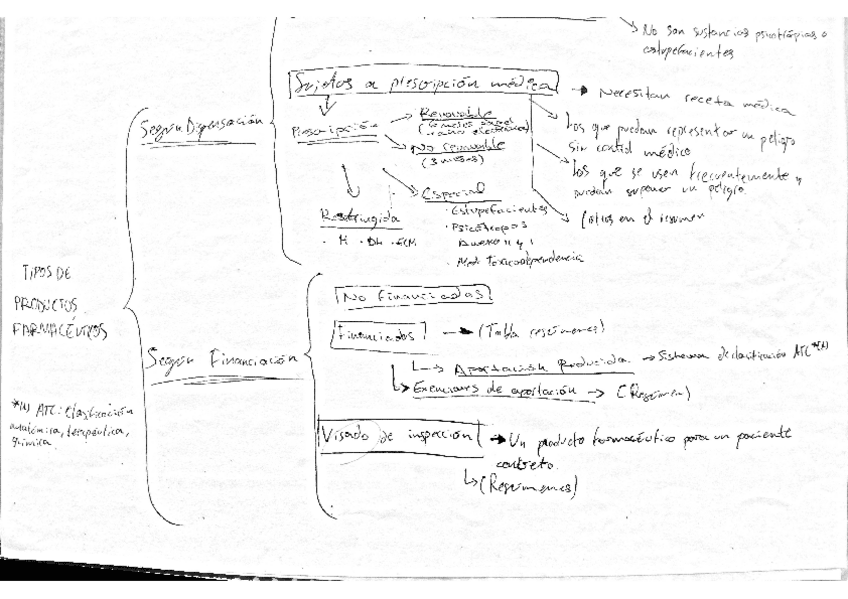 No son sustancias psicotrópicas o
estupefacientes
Sujetos a prescripción médica
Necesitan receta médica
Según Dispensación
Prescripción
Renovable
No renovable
(3 meses)
Los que puedan representar un peligro
sin control médico
Los que se usen frecuentemente y
puedan suponer un peligro.
en el resumen
Restringida
· H · DH · ECM
Especial
· Estupefacientes
· Psicótropos
Anexo
· Med. Toxicodependencia
TIPOS DE
PRODUCTOS
FARMACÉUTICOS
Según Financiación
No Financiados
Financiados
(Tabla resúmenes)
Aportación Reducida → Sistema de clasificación ATC*(1)
Exenciones de aportación → (Resumen)
Visado de inspección
Un producto farmacéutico para un paciente
concreto.
(Resúmenes)
*(1) ATC: Clasificación
anatómica, terapéutica,
química.